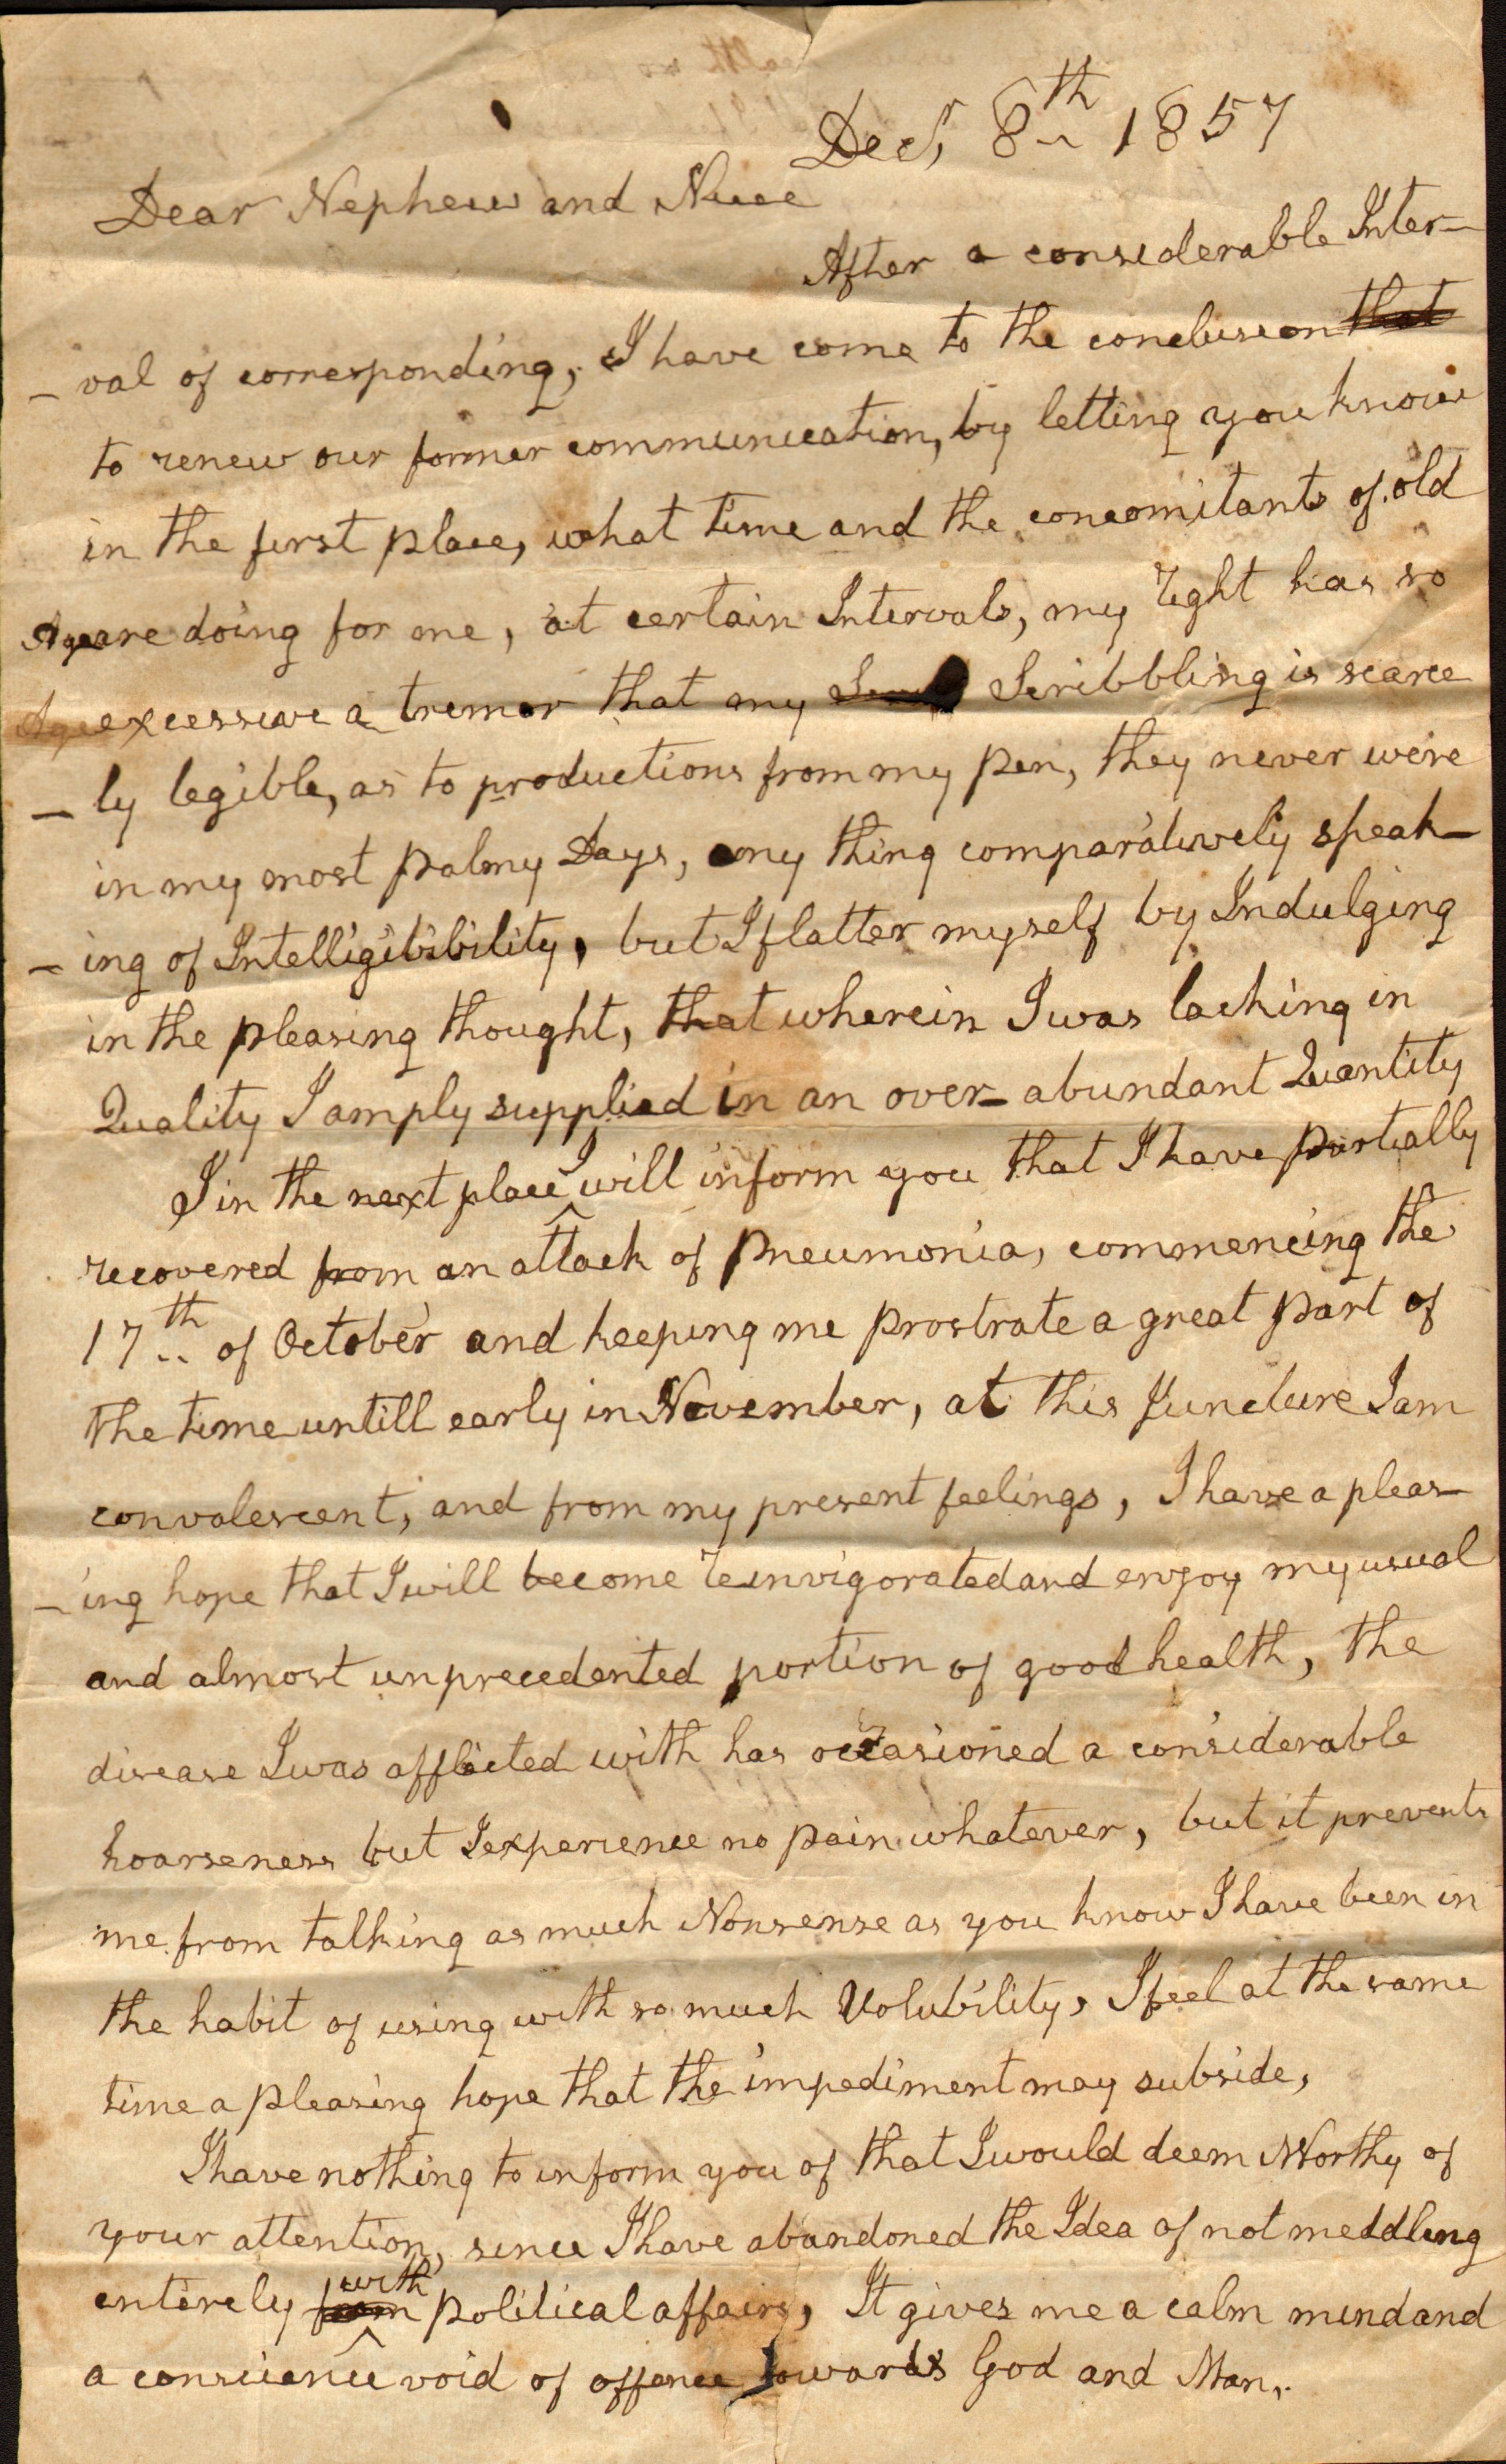 Decr, 8th 1857
Dear Nephew and Niece
After a considerable Inter-
- val of corresponding, I have come to the conclusion that
to renew our former communication, by letting you know
in the first place, what time and the concomitants of old
Age are doing for me, at certain Intervals, my right has so
Age excessive a tremor that my Scribbling is scarce
- ly legible, as to productions from my pen, they never were
in my most palmy Days, any thing comparatively speak-
- ing of Intelligibibility, but I flatter myself by Indulging
in the pleasing thought, that wherein I was lacking in
Quality I amply supplied in an over- abundant Quantity
I in the next place I will inform you that I have partially
recovered from an attack of pneumonia, commencing the
17th of October and keeping me prostrate a great part of
the time untill early in November, at this Juncture I am
convalescent, and from my present feelings, I have a pleas-
- ing hope that I will become reinvigorated and enjoy my usual
and almost unprecedented portion of good health, the
disease I was afflicted with has occasioned a considerable
hoarseness but I experience no pain whatever, but it prevents
me from talking as much Nonsense as you know I have been in
the habit of using with so much Volubility, I feel at the same
time a pleasing hope that the impediment may subside,
I have nothing to inform you of that I would deem Worthy of
your attention, since I have abandoned the Idea of not meddling
entirely from with political affairs, It gives me a calm mind and
a conscience void of offence towards God and Man,.